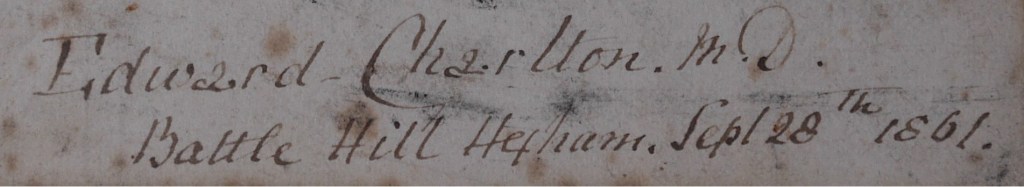 Edward Charlton. M.D.
Battle Hill Hexham. Sept 28th 1861.